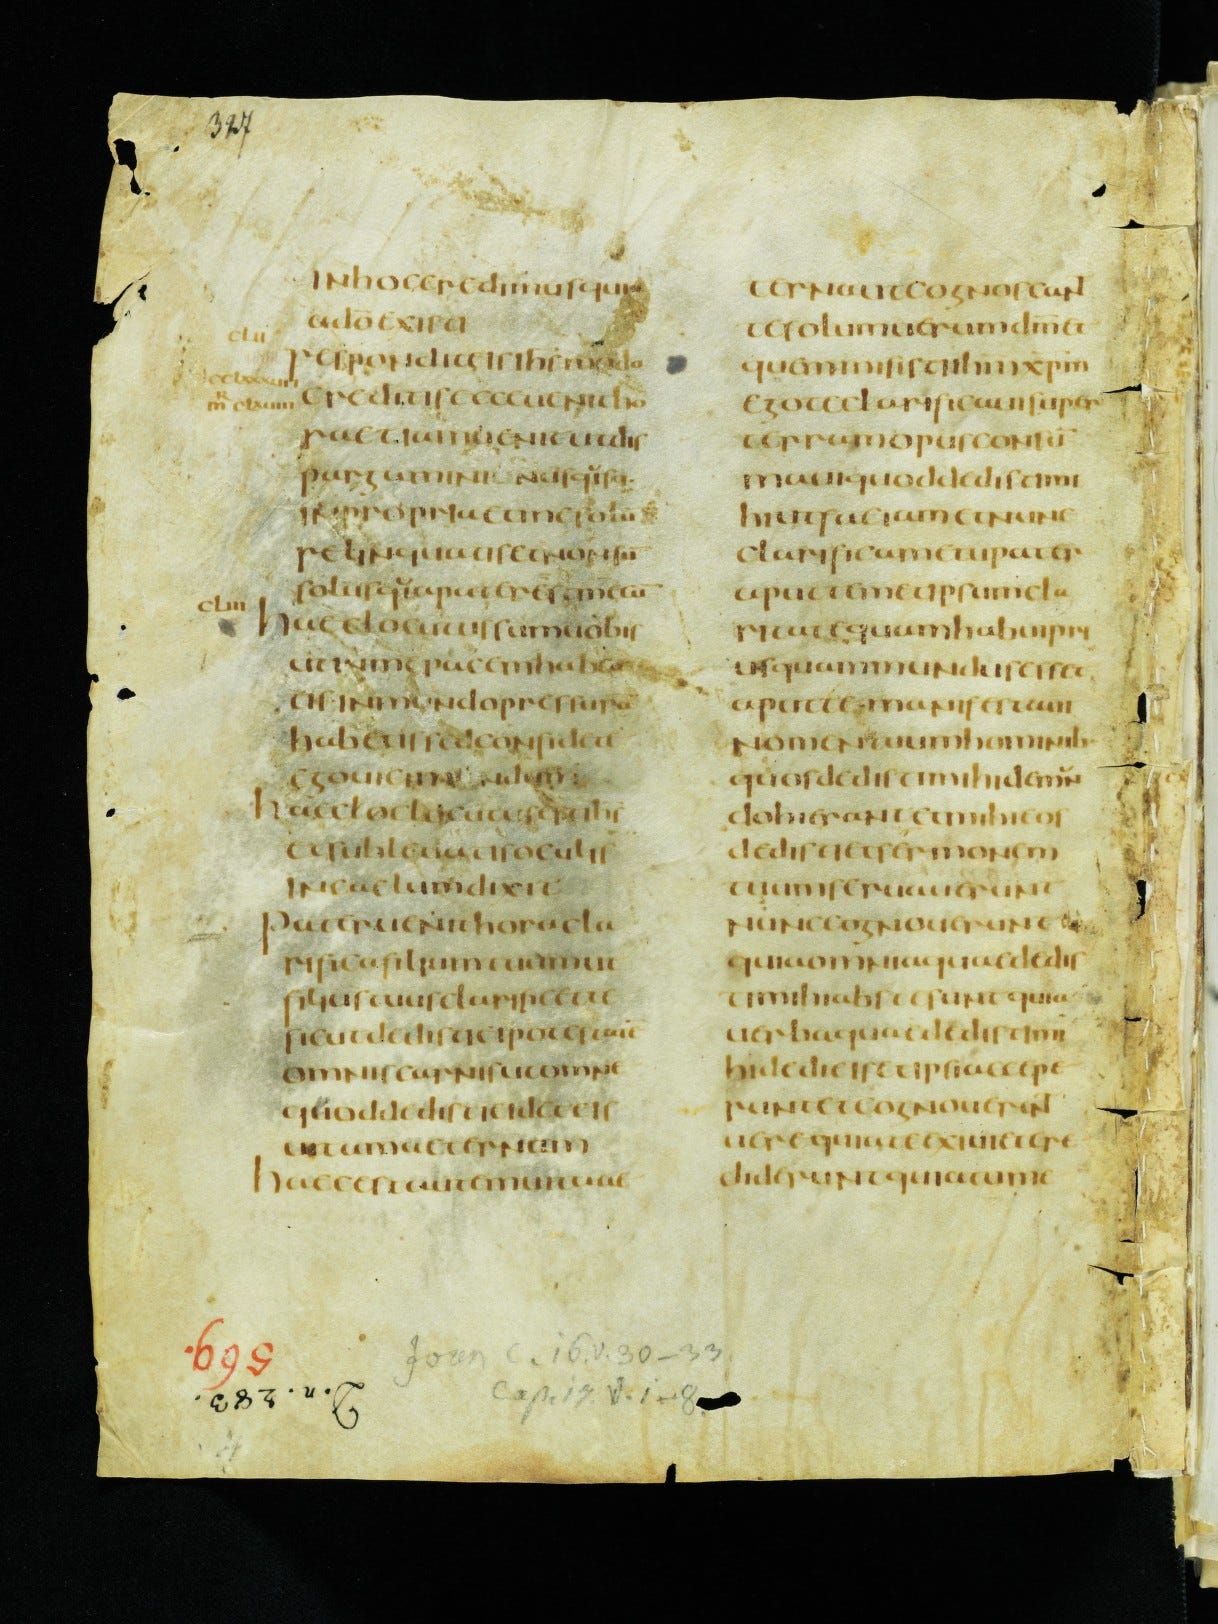 327
in hoc credimus quia
a dō existi
clii
respondit eis ihs modo
cclxxxiiii
m̄ clxuiiii
creditis ecce uenit ho
ra et iam uenit ut dis
pargamini unusquisq·
in propria et me solū
relinquatis et non sū
solus quia pater est mecū
cliii
haec locutus sum uobis
ut in me pacem habea
tis in mundo pressurā
habetis sed confidete
ego uici mundum
haec locutus est ihs
et subleuatis oculis
in caelum dixit
pater uenit hora cla
rifica filium tuum ut
filius tuus clarificet te
sicut dedisti ei potestatē
omnis carnis ut omne
quod dedisti ei det eis
uitam aeternam
haec est autem uita ae
terna ut te cognoscant
te solum uerum dm̄ et
quem misisti ihm xpm
ego te clarificaui super
terram opus consū
maui quod dedisti mi
hi ut faciam et nunc
clarifica me tu pater
apud temetipsum cla
ritate quam habui pri
usquam mundus esset
apud te manifestaui
nomen tuum hominib
quos dedisti mihi de mun
do hi erant et mihi eos
dedisti et sermonem
tuum seruauerunt
nunc cognouerunt
quia omnia quae dedis
ti mihi abs te sunt quia
uerba quae dedisti mi
hi dedi eis et ipsi accepe
runt et cognouerunt
uere quia a te exiui et cre
diderunt quia tu me
Joan c. 16 v. 30–33
Cap. 17. v. 1–8.
569.
D. n. 283.